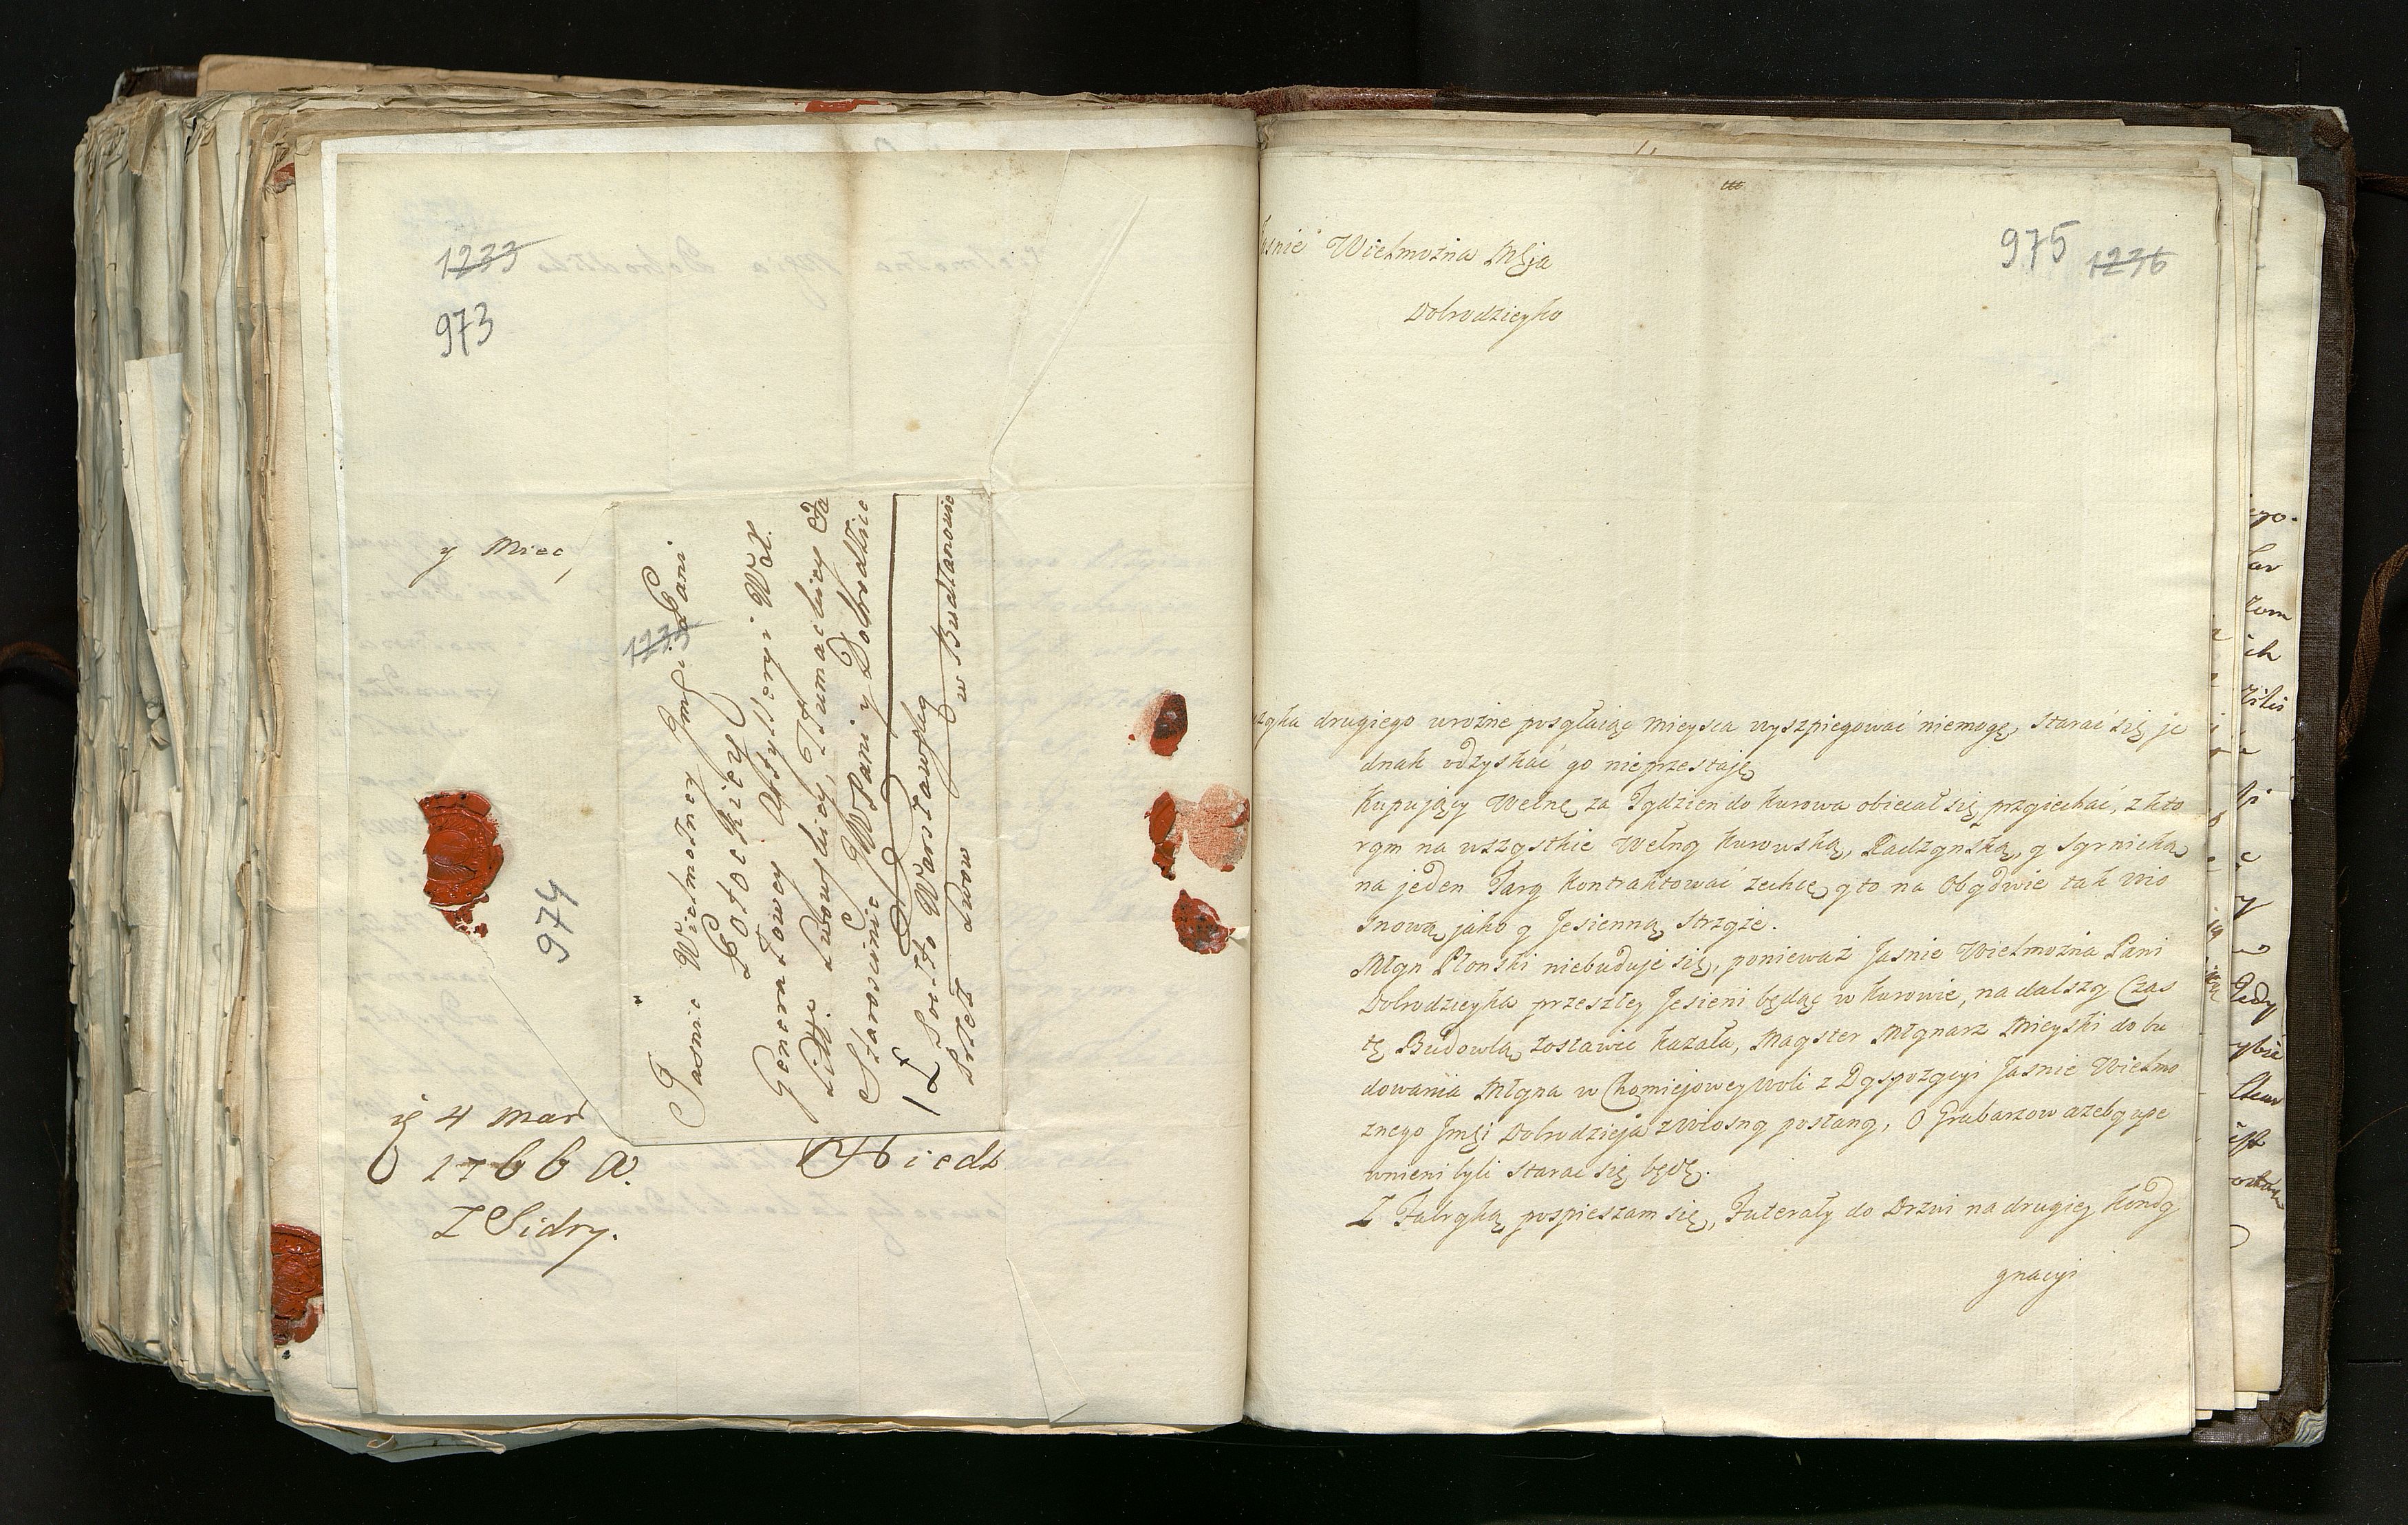 1233
973
y Miec
1235
Jasnie Wielmożney Jmści Pani
Potockiey
Generałowey Artylleryi Wol.
Litt. Lwowskiey, Tłumackiey &
Starościnie JWPani y Dobrodtice
Soitto Warszawską
Lwow w Budzanowie
974
4 mar
1766 a.
Z Sidry.
Niedz
975 1236
Jasnie Wielmożna Mśja
Dobrodzieyko
zyka drugiego urożne posyłaiąc mieysca wyszpiegować niemogę, starać się je
dnak odzyskać go nieprzestaję
Kupujący Wełnę za Tydzien do Kurowa obiecał się przyiechać, z kto
rym na wszystkie Wełny Kurowską, Radzynską, y Syrnicką
na jeden Targ Kontraktować zechcę, y to na Obydwie tak wio
snową jako y Jesienną Strzyże.
Młyn Płonski niebuduje się, ponieważ Jasnie Wielmożna Pani
Dobrodzieyka przeszłey Jesieni będąc w Kurowie, na dalszy Czas
tę Budowlą zostawić kazała, Mayster Młynarz Mieyski do bu
dowania Młyna w Chomiejowey Woli z Dyspozycyi Jasnie Wielmo
żnego Jmści Dobrodzieja z wiosny posłany, O Grabarzow ażeby upe
wnieni byli starać się będę.
Z Fabryką pospieszam się, Futerały do Drzwi na drugiey Kondy
gnacyi